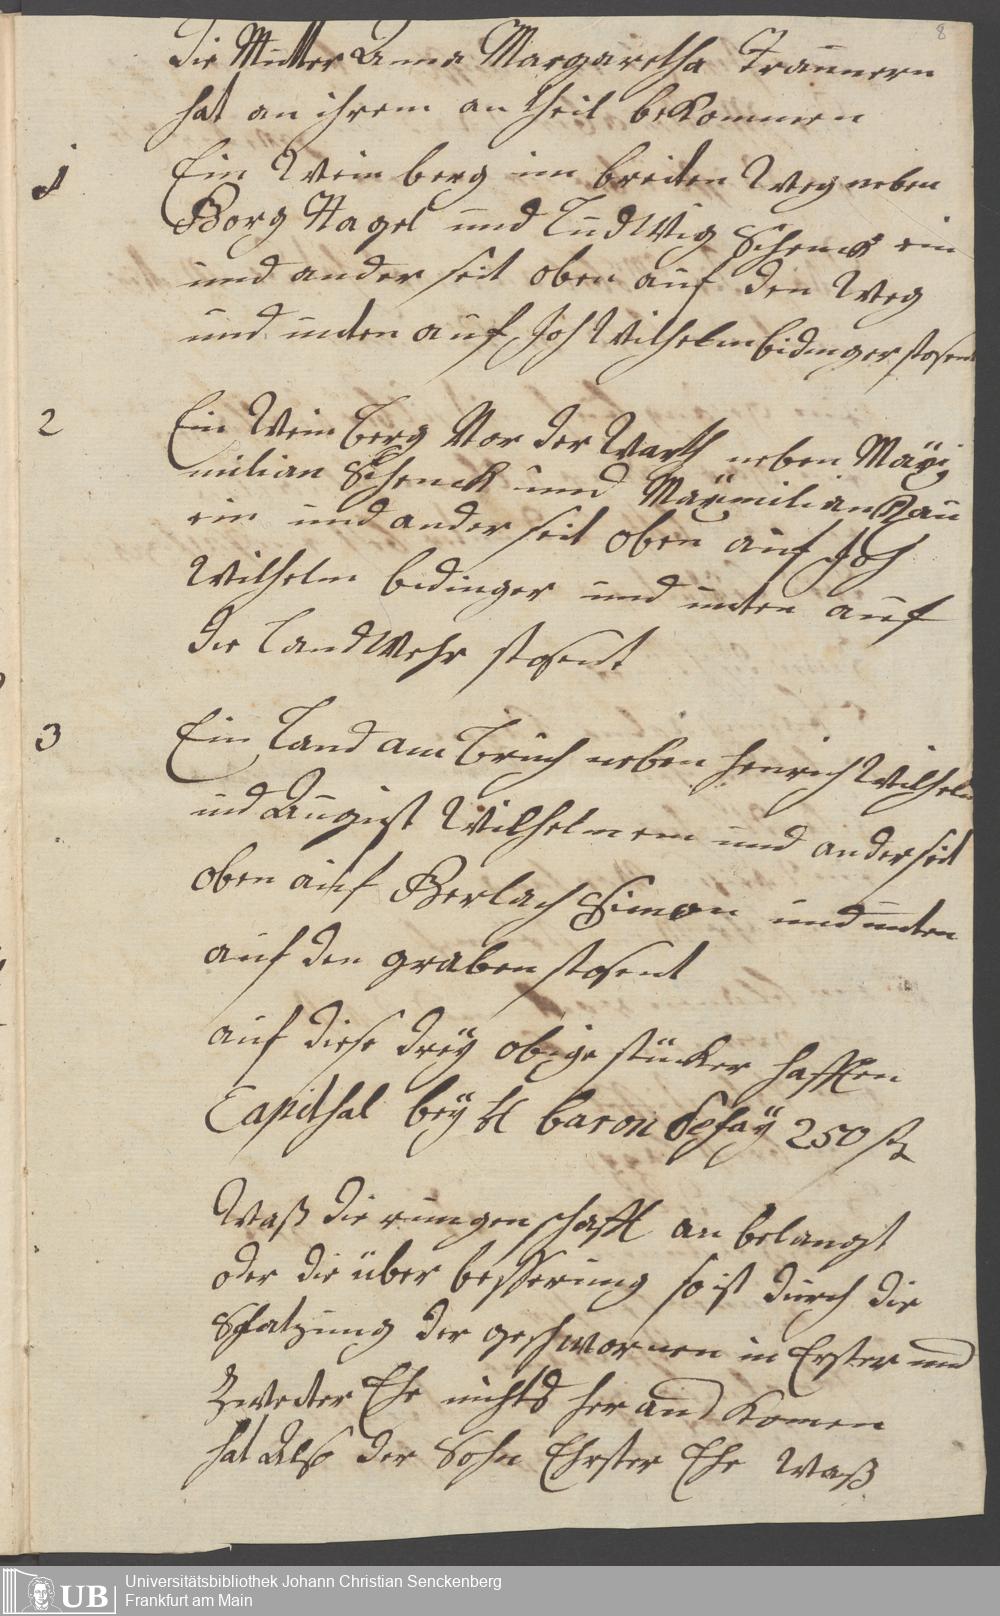 8
Die Mutter Anna Margaretha Traunern
hat an ihrem antheil bekommen
1
Ein Wein berg im breiten Weg neben
Georg Nagel und Ludwig Schenck ein
und ander seit oben auf den Weg
und unten auf Joh Wilhelm bidinger stosent
2
Ein Wein berg Vor der Warth neben Maxi
milian Schenck und Maximilian
ein und ander seit oben auf Joh
Wilhelm bidinger und unten auf
die landwehr stosent
3
Ein Land am bruch neben Henrich Wilhelm
und August Wilhelm ein und ander seit
oben auf Gerlach Simon und unten
auf den graben stosent
auf diese dreÿ obige stücker hafften
Capithal beÿ H baron 250 fl
Waß die rungenschafft an belangt
oder die über besserung so ist durch die
Schatzung der geschwornen in Erster und
Zweiter Ehe nichts her aus komen
hat Also der Sohn Ehrster Ehe Waß
UB
Universitätsbibliothek Johann Christian Senckenberg
Frankfurt am Main